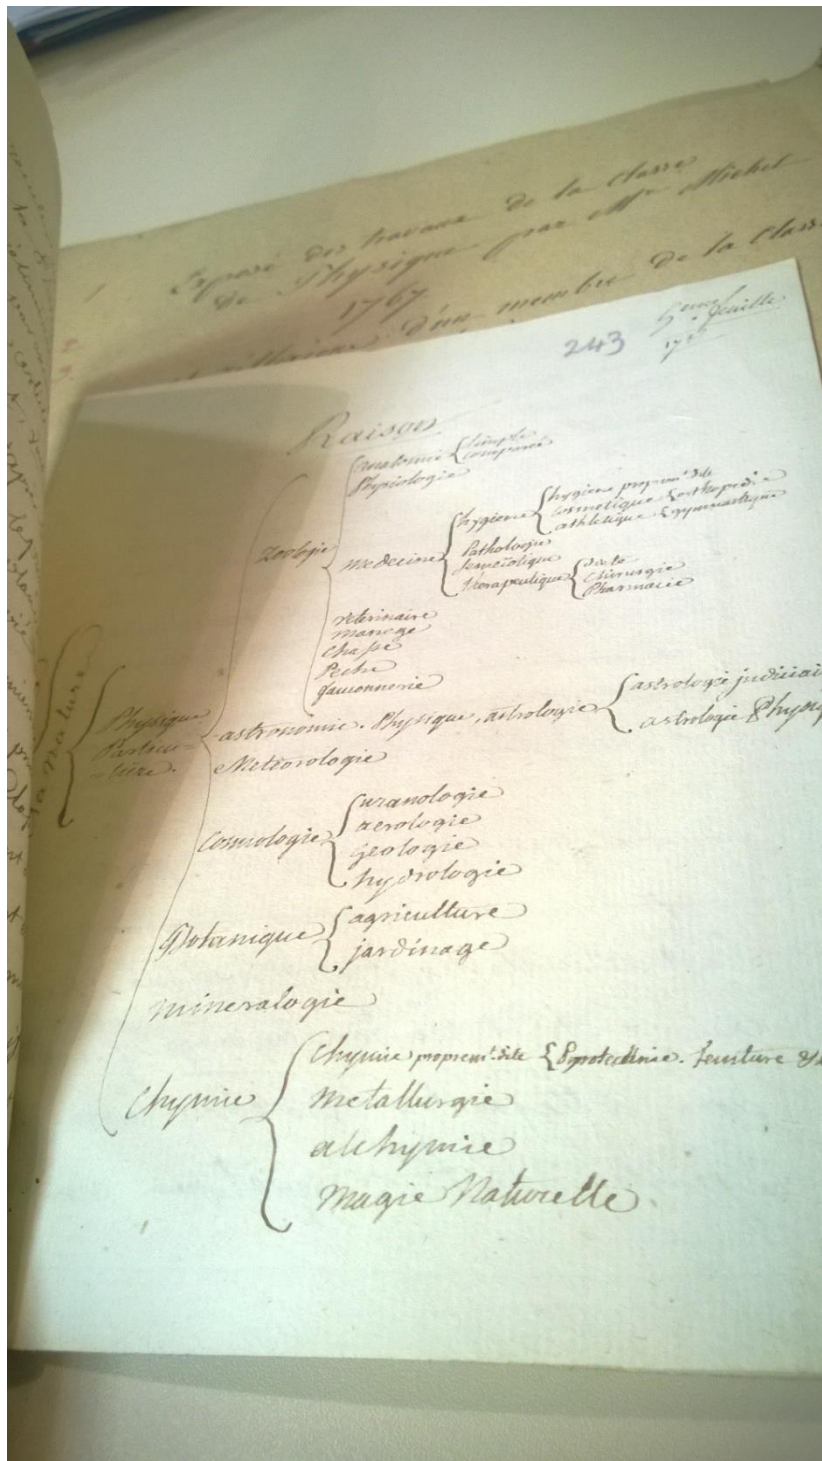 1 Exposé des travaux de la Classe
de Physique par Mr Michel
1767
2
d'un membre de la Class
3.
243
feuille
Raison
anatomie { simple
comparée
Physiologie
Zoologie
medecine
hygiene { hygiene proprem.t dite
cosmetique & orthopedie
athletique & gymnastique
Pathologie
Semeiotique
therapeutique { diete
Chirurgie
Pharmacie
veterinaire
manege
chasse
Peche
fauconnerie
la nature
Physique
Particu-
-liere.
astronomie. Physique, astrologie { astrologie judiciai
astrologie Physiq
Meteorologie
Cosmologie { uranologie
aerologie
geologie
hydrologie
Botanique { agriculture
jardinage
mineralogie
Chymie { Chymie proprem.t dite { Pyrotechnie. teinture &
metallurgie
alchymie
magie Naturelle